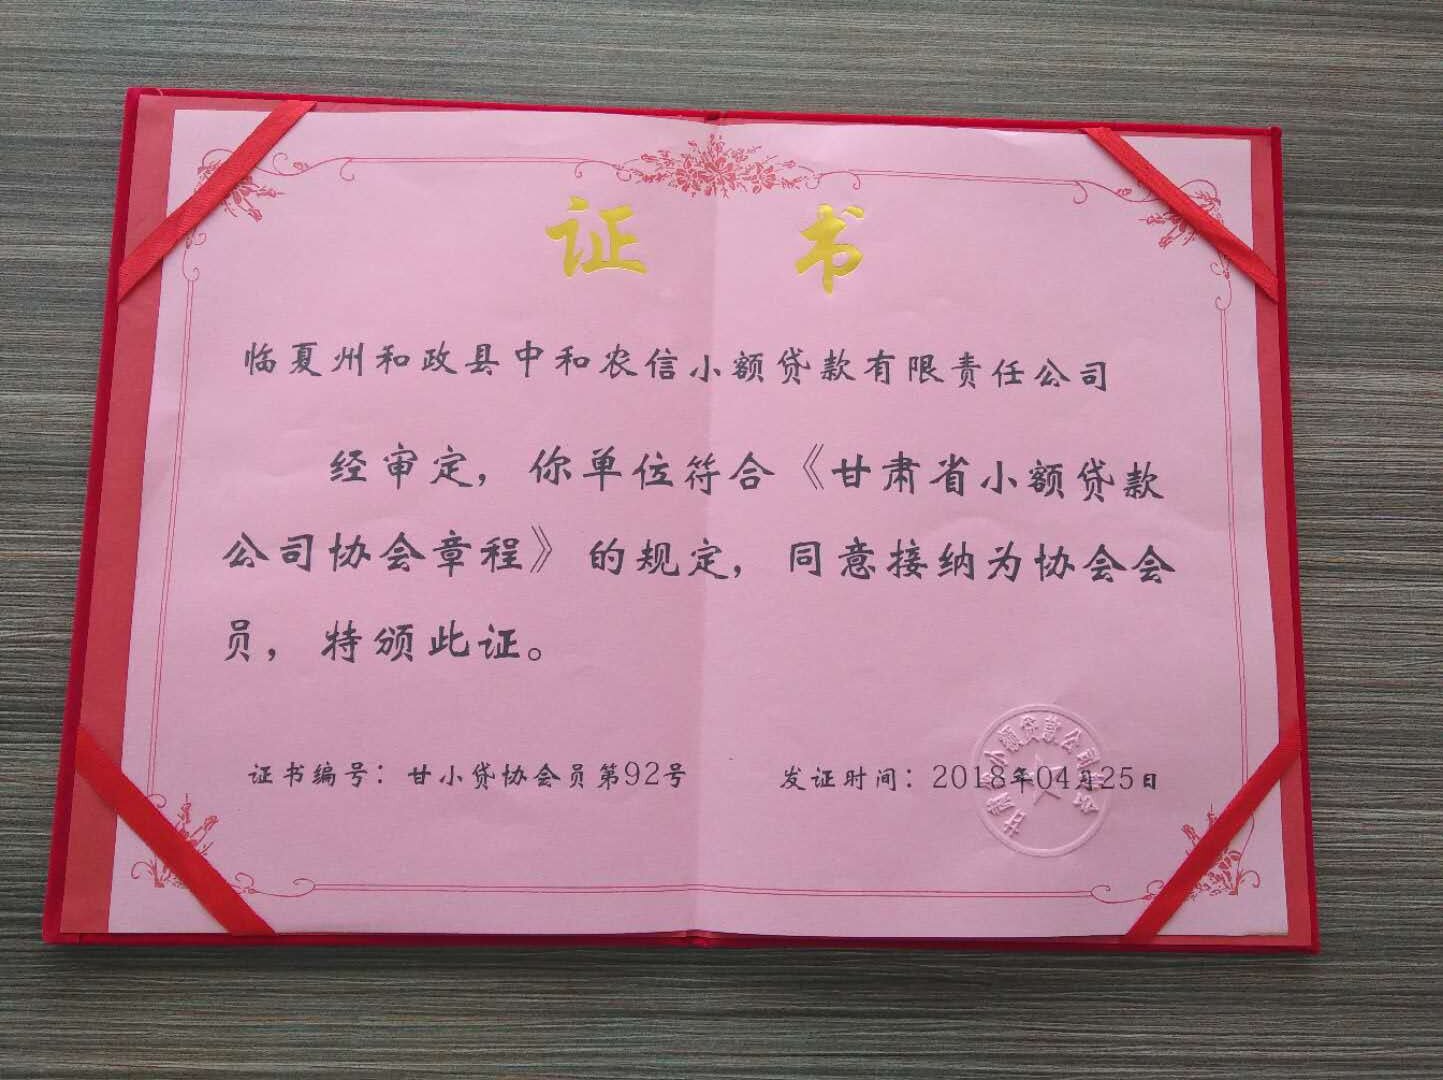 证书
临夏州和政县中和农信小额贷款有限责任公司
经审定，你单位符合《甘肃省小额贷款
公司协会章程》的规定，同意接纳为协会会
员，特颁此证。
证书编号：甘小贷协会员第92号
发证时间：2018年04月25日
甘肃省小额贷款公司协会